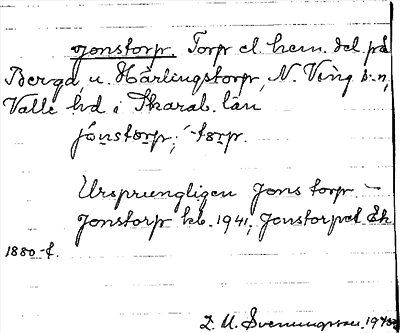 Jonstorp. Torp el. hem. del på
Berga, u. Härlingstorp, N. Ving s:n,
Valle hd i Skarab. län
jónstorp; -torp.
Ursprungligen Jons torp. –
Jonstorp kb. 1941, Jonstorpet Ek
1880-t.
Z. U. Svenungsson. 1943